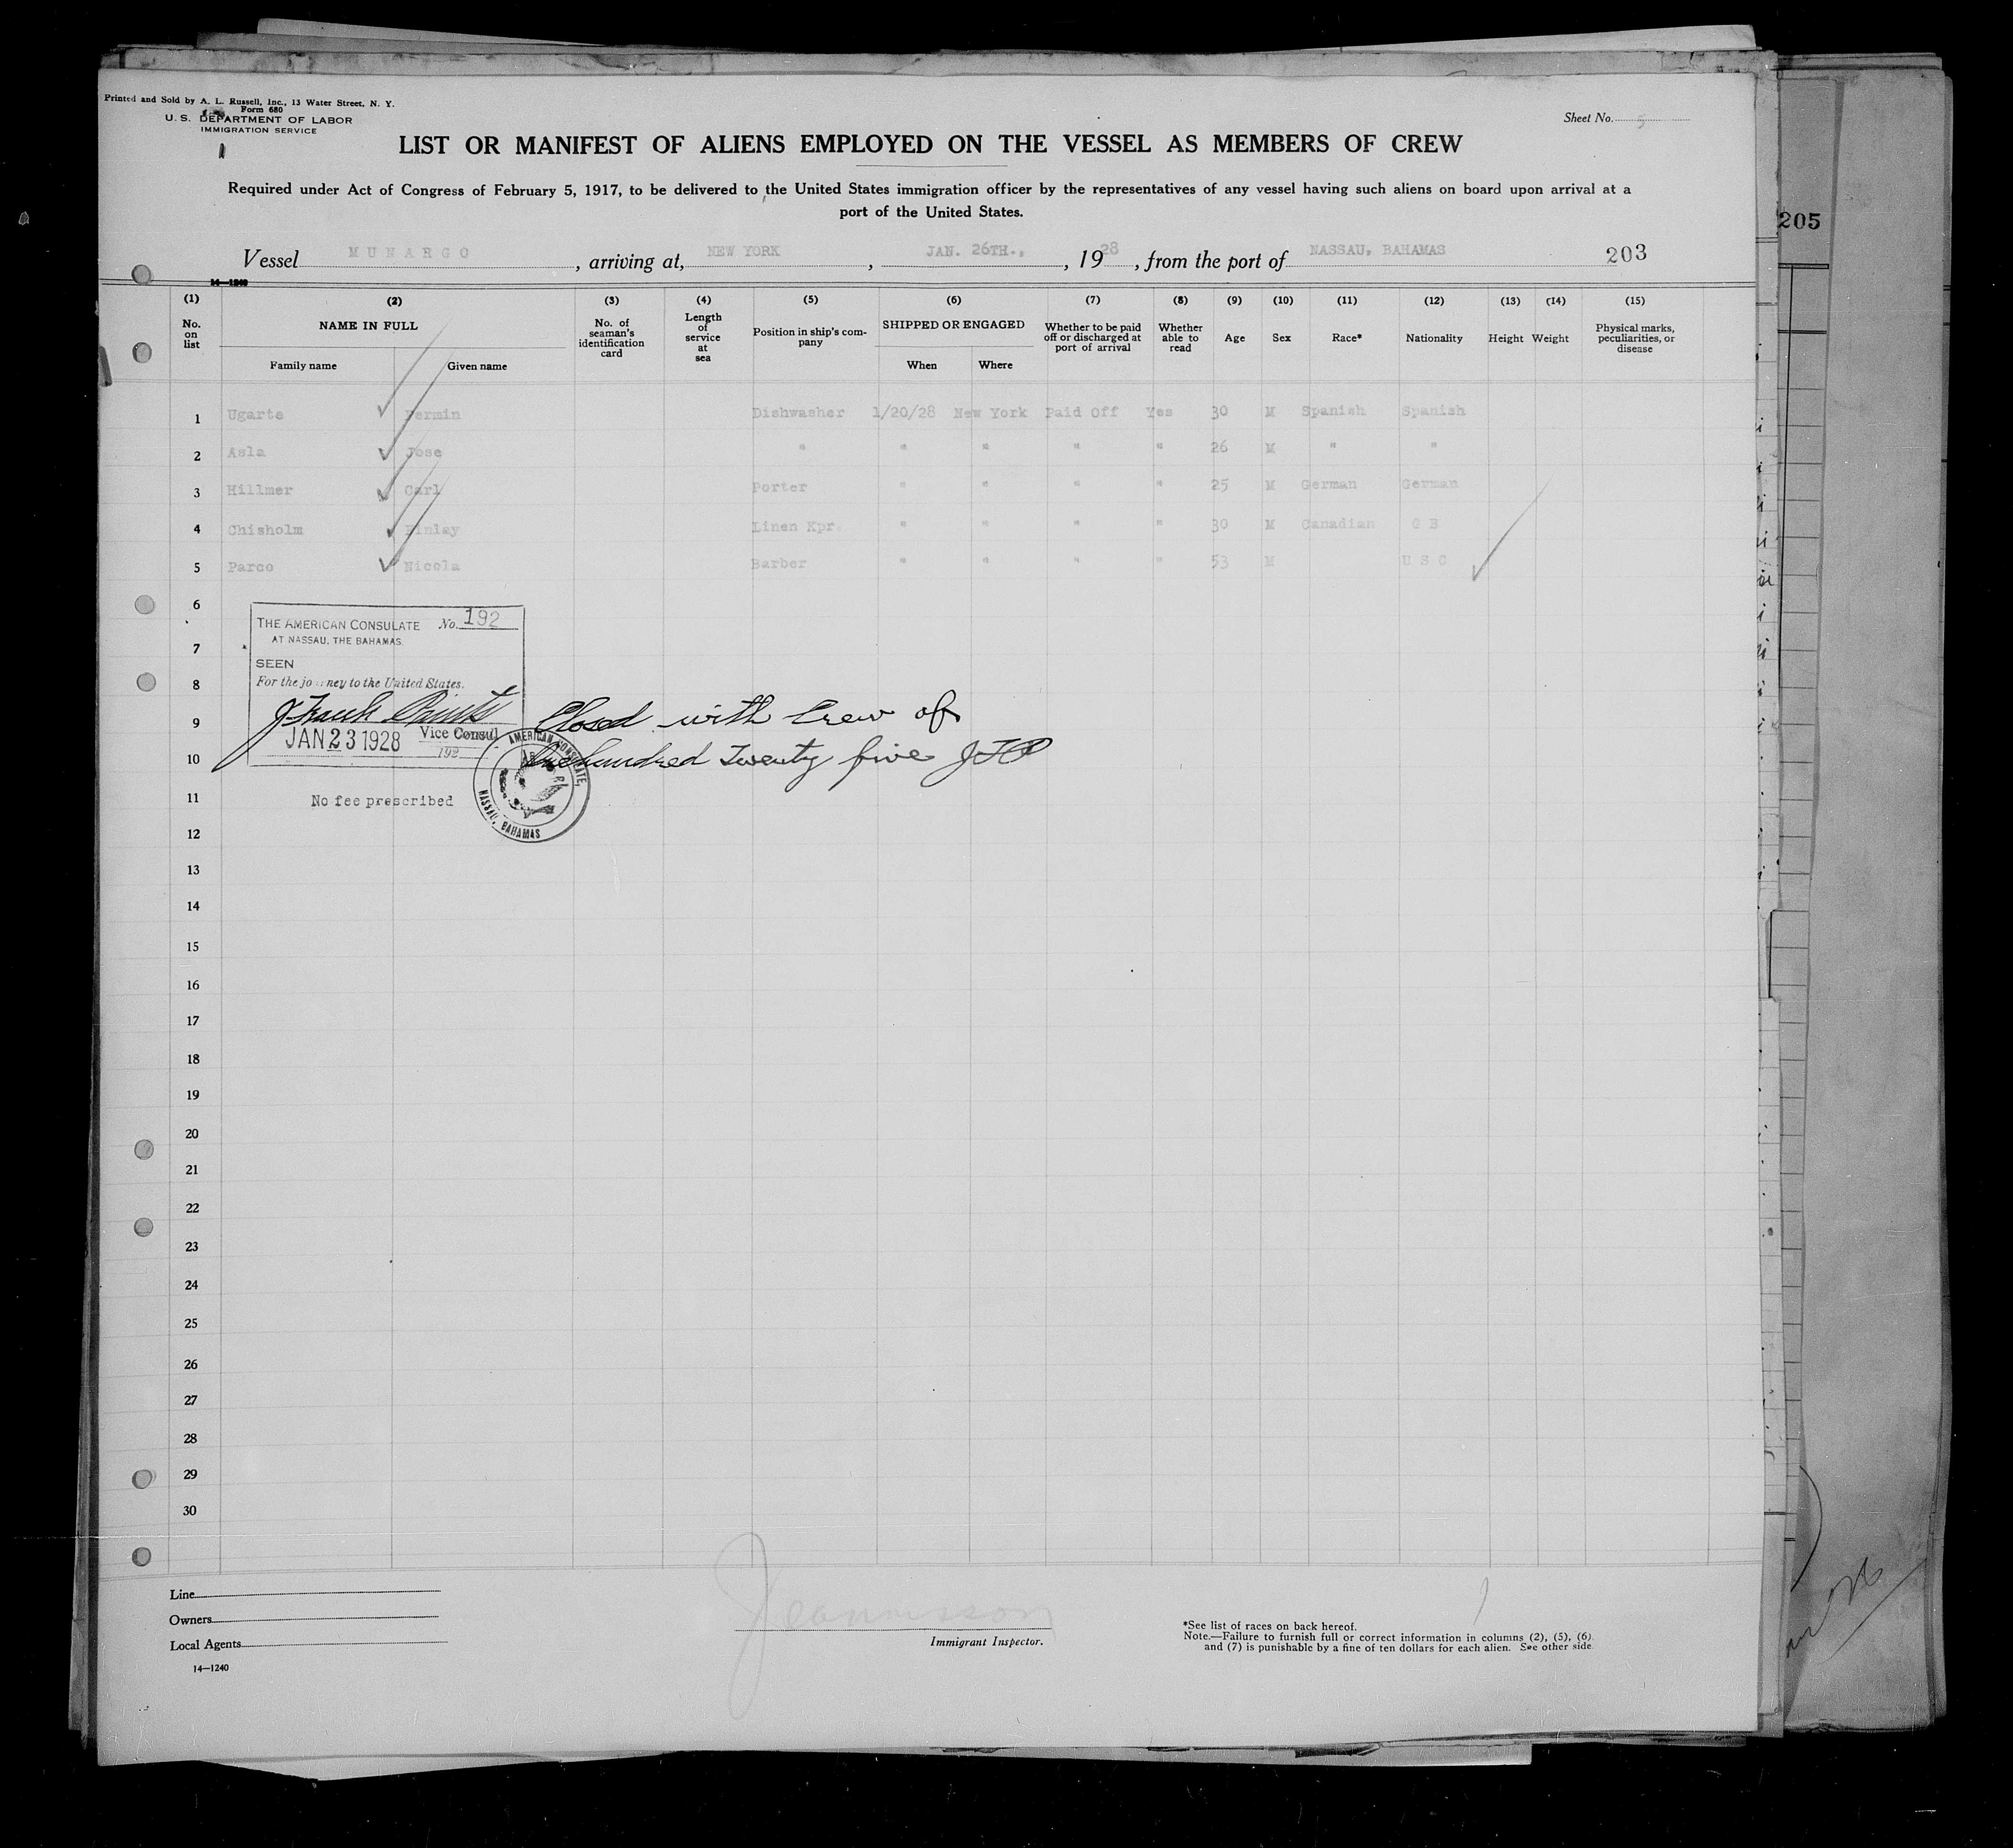 Printed and Sold by A. L. Russell, Inc., 13 Water Street, N. Y.
Form 680
U. S. DEPARTMENT OF LABOR
IMMIGRATION SERVICE
Sheet No. 5
LIST OR MANIFEST OF ALIENS EMPLOYED ON THE VESSEL AS MEMBERS OF CREW
Required under Act of Congress of February 5, 1917, to be delivered to the United States immigration officer by the representatives of any vessel having such aliens on board upon arrival at a
port of the United States.
205
Vessel MUNARGO, arriving at, NEW YORK, JAN. 26TH., 1928, from the port of NASSAU, BAHAMAS 203
14—1240
(1) (2) (3) (4) (5) (6) (7) (8) (9) (10) (11) (12) (13) (14) (15)
No. on list NAME IN FULL Family name Given name No. of seaman's identification card Length of service at sea Position in ship's company SHIPPED OR ENGAGED When Where Whether to be paid off or discharged at port of arrival Whether able to read Age Sex Race* Nationality Height Weight Physical marks, peculiarities, or disease
1 Ugarte Fermin Dishwasher 1/20/28 New York Paid Off Yes 30 M Spanish Spanish
2 Asla Jose " " " " " 26 M " "
3 Hillmer Carl Porter " " " " 25 M German German
4 Chisholm Finlay Linen Kpr. " " " " 30 M Canadian G B
5 Parco Nicola Barber " " " " 53 M U S C
6
7
8
9
10
11
12
13
14
15
16
17
18
19
20
21
22
23
24
25
26
27
28
29
30
THE AMERICAN CONSULATE No. 192
AT NASSAU, THE BAHAMAS.
SEEN
For the journey to the United States.
J Frank Points
JAN 23 1928 Vice Consul
192
No fee prescribed
AMERICAN CONSULATE, NASSAU, BAHAMAS
Closed with Crew of
One hundred Twenty five JFP
Line
Owners
Local Agents
14—1240
Immigrant Inspector.
*See list of races on back hereof.
Note.—Failure to furnish full or correct information in columns (2), (5), (6)
and (7) is punishable by a fine of ten dollars for each alien. See other side